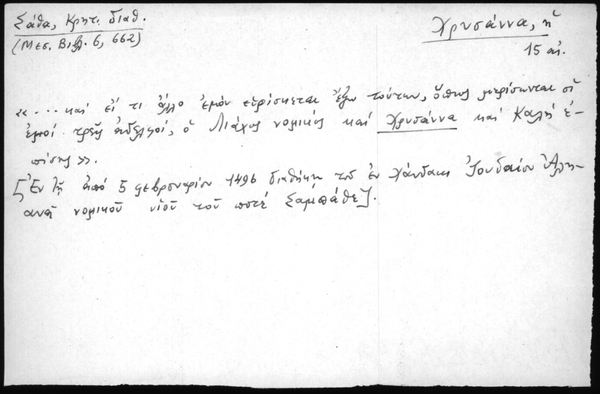 Σάθα, Κρητ. διαθ.
(Μεσ. Βιβλ. 6, 662)
Χρυσάννα, ἡ
15 αἰ.
«... καὶ εἴ τι ἄλλο ἐμὸν εὑρίσκεται ἔξω τούτων, ὅπως μερίσωνται οἱ
ἐμοὶ τρεῖς ἀδελφοί, ὁ Λιάχος νομικὸς καὶ Χρυσάννα καὶ Καλὴ ἐ-
πίσης».
[Ἐν τῇ ἀπὸ 5 φεβρουαρίου 1496 διαθήκῃ τοῦ ἐν Χάνδακι Ἰουδαίου
νομικοῦ υἱοῦ τοῦ ποτὲ Σαμπάθε].